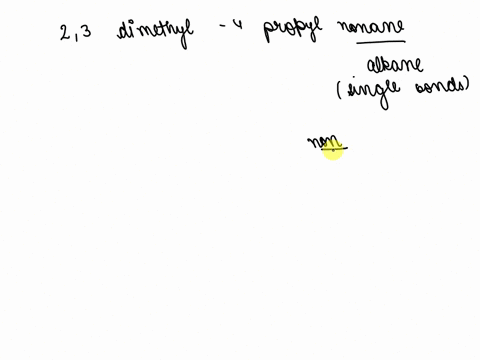 2,3 dimethyl -4 propyl nonane
alkane
(single bonds)
non